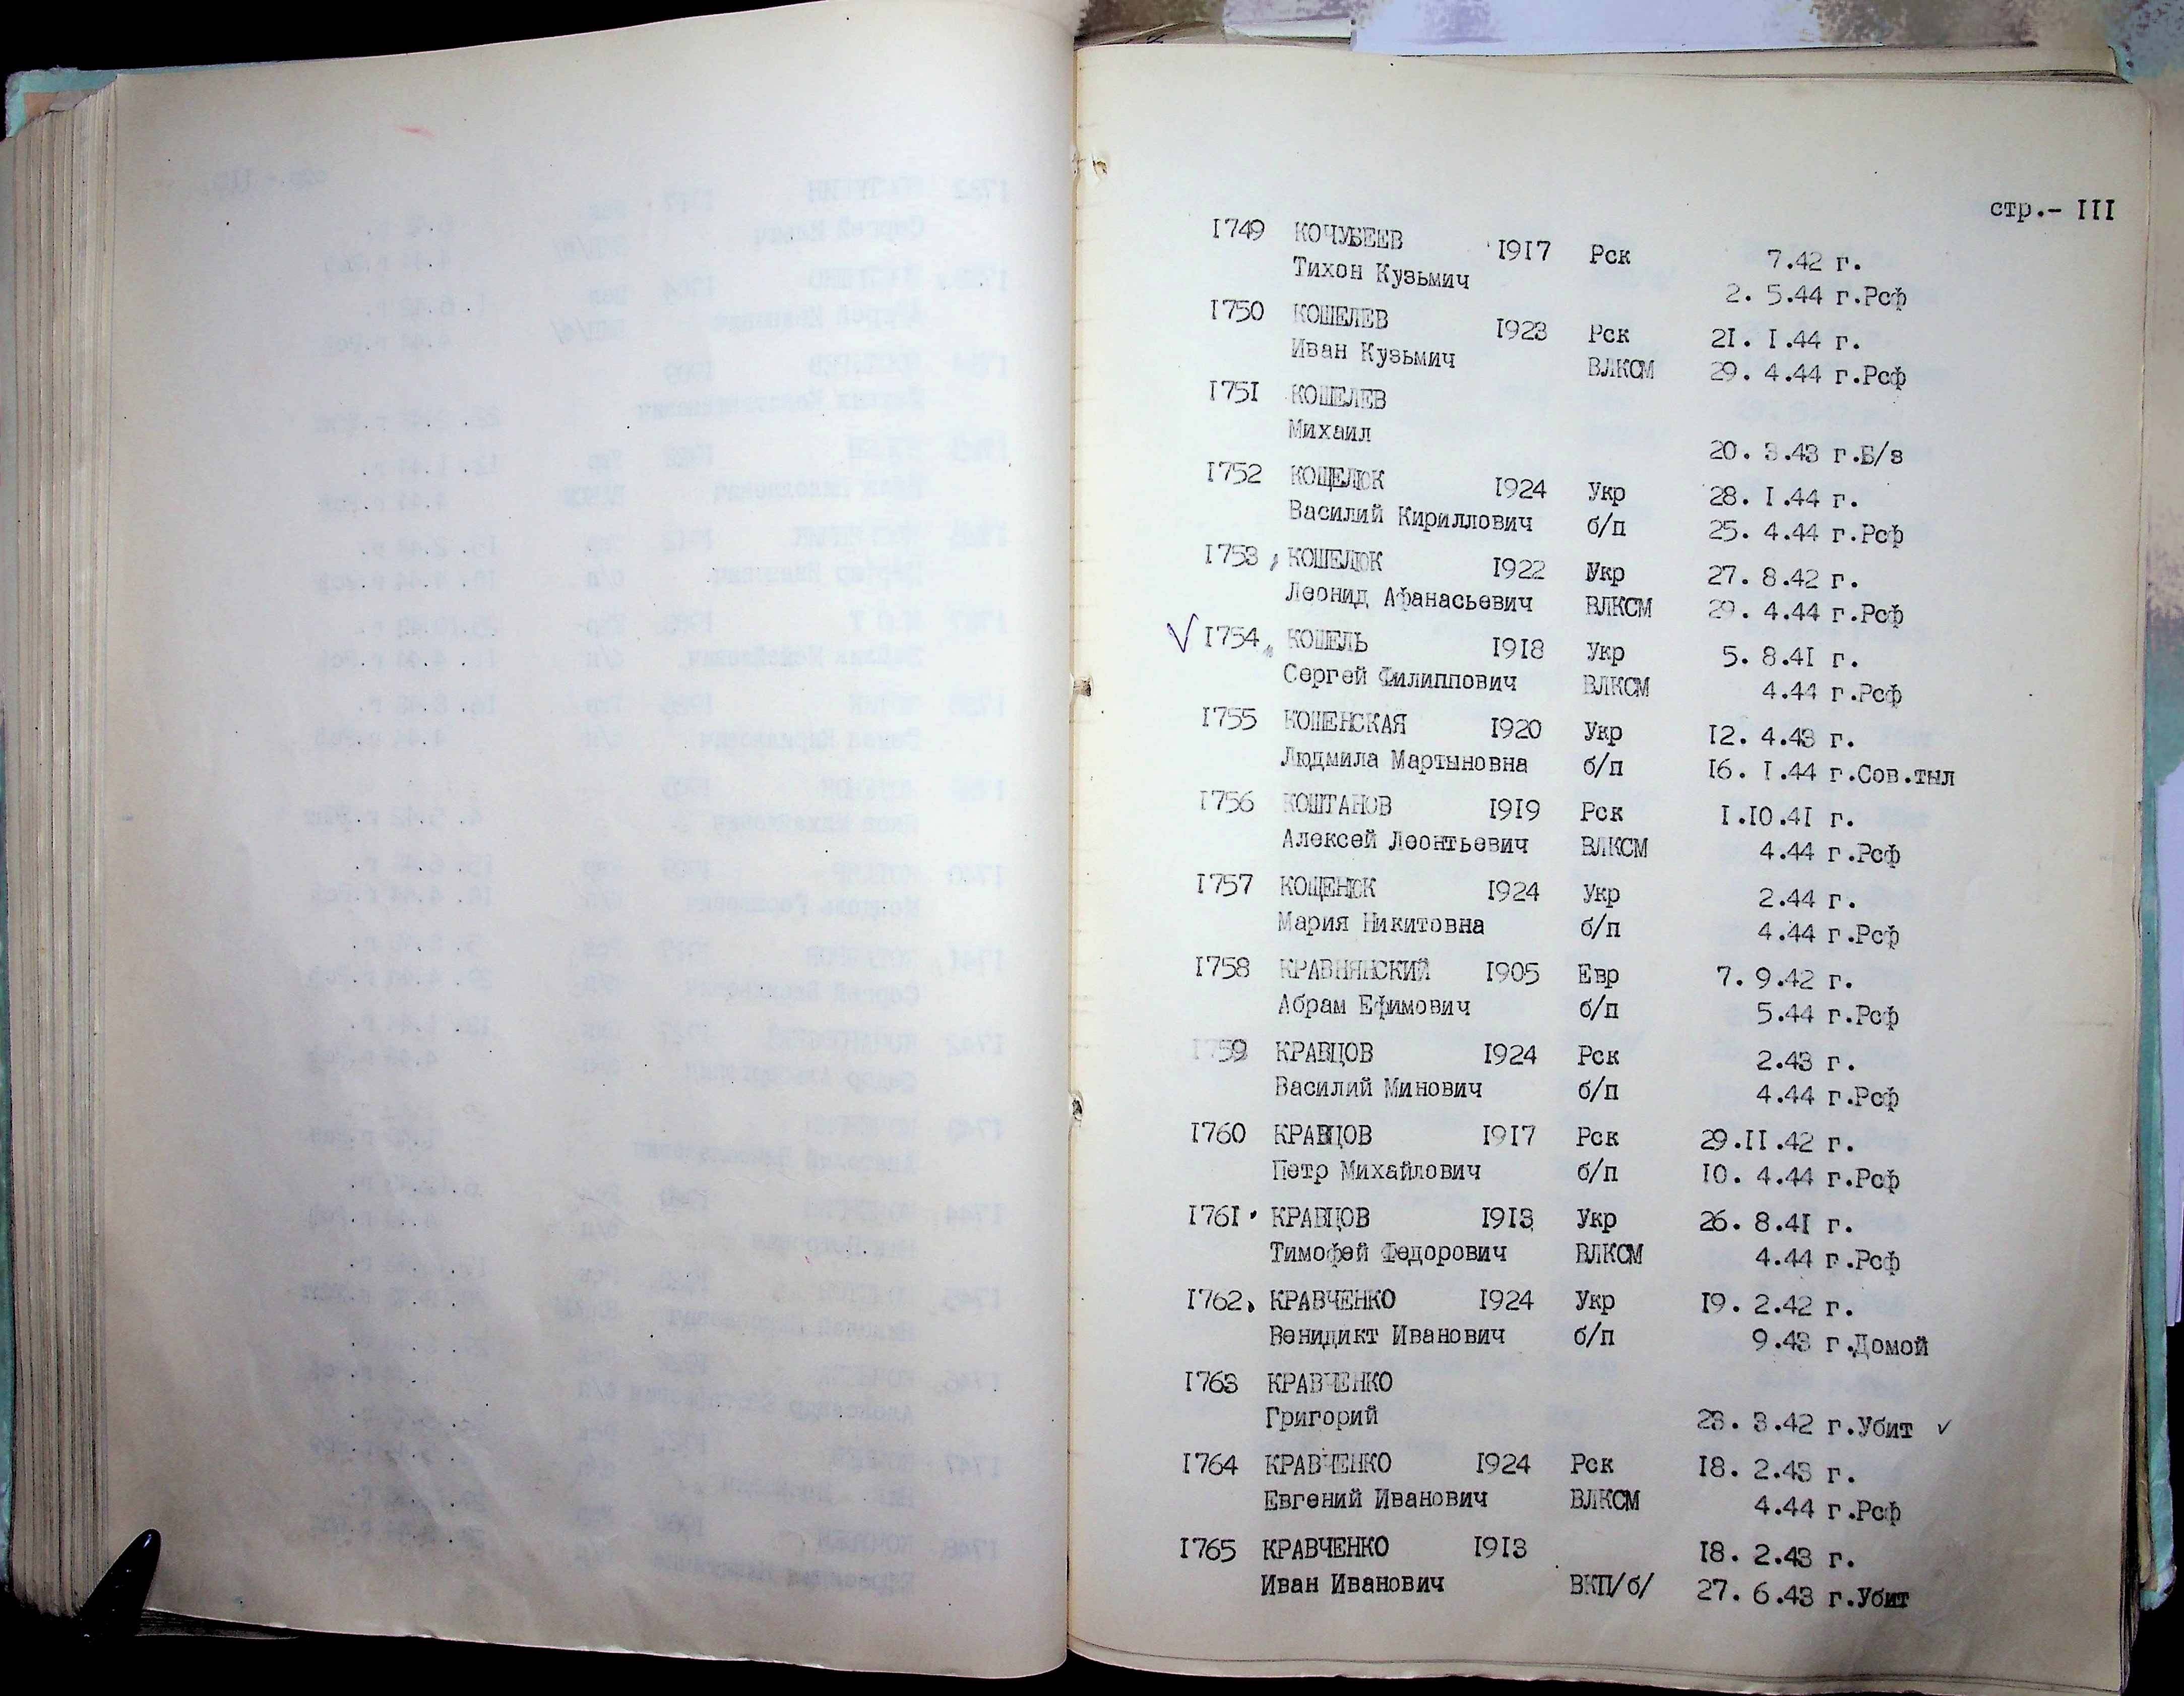 стр.- III
I749 КОЧУБЕЕВ I9I7 Рск 7.42 г.
Тихон Кузьмич 2. 5.44 г.Рсф
I750 КОШЕЛЕВ I923 Рск 2I. I.44 г.
Иван Кузьмич ВЛКСМ 29. 4.44 г.Рсф
I75I КОШЕЛЕВ
Михаил 20. 3.43 г.Б/з
I752 КОЩЕЛЮК I924 Укр 28. I.44 г.
Василий Кириллович б/п 25. 4.44 г.Рсф
I753 КОШЕЛЮК I922 Укр 27. 8.42 г.
Леонид Афанасьевич ВЛКСМ 29. 4.44 г.Рсф
√ I754 КОШЕЛЬ I9I8 Укр 5. 8.4I г.
Сергей Филиппович ВЛКСМ 4.44 г.Рсф
I755 КОШЕНСКАЯ I920 Укр I2. 4.43 г.
Людмила Мартыновна б/п I6. I.44 г.Сов.тыл
I756 КОШТАНОВ I9I9 Рск I.I0.4I г.
Алексей Леонтьевич ВЛКСМ 4.44 г.Рсф
I757 КОЩЕНЮК I924 Укр 2.44 г.
Мария Никитовна б/п 4.44 г.Рсф
I758 КРАВНЯНСКИЙ I905 Евр 7. 9.42 г.
Абрам Ефимович б/п 5.44 г.Рсф
I759 КРАВЦОВ I924 Рск 2.43 г.
Василий Минович б/п 4.44 г.Рсф
I760 КРАВЦОВ I9I7 Рск 29.II.42 г.
Петр Михайлович б/п I0. 4.44 г.Рсф
I76I КРАВЦОВ I9I3 Укр 26. 8.4I г.
Тимофей Федорович ВЛКСМ 4.44 г.Рсф
I762 КРАВЧЕНКО I924 Укр I9. 2.42 г.
Венидикт Иванович б/п 9.43 г.Домой
I763 КРАВЧЕНКО
Григорий 23. 3.42 г.Убит ✓
I764 КРАВЧЕНКО I924 Рск I8. 2.43 г.
Евгений Иванович ВЛКСМ 4.44 г.Рсф
I765 КРАВЧЕНКО I9I3 I8. 2.43 г.
Иван Иванович ВКП/б/ 27. 6.43 г.Убит